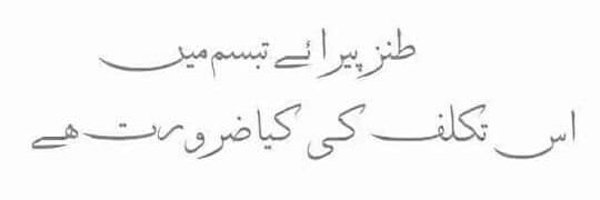 طنز پیرائے تبسم میں
اس تکلف کی کیا ضرورت ھے